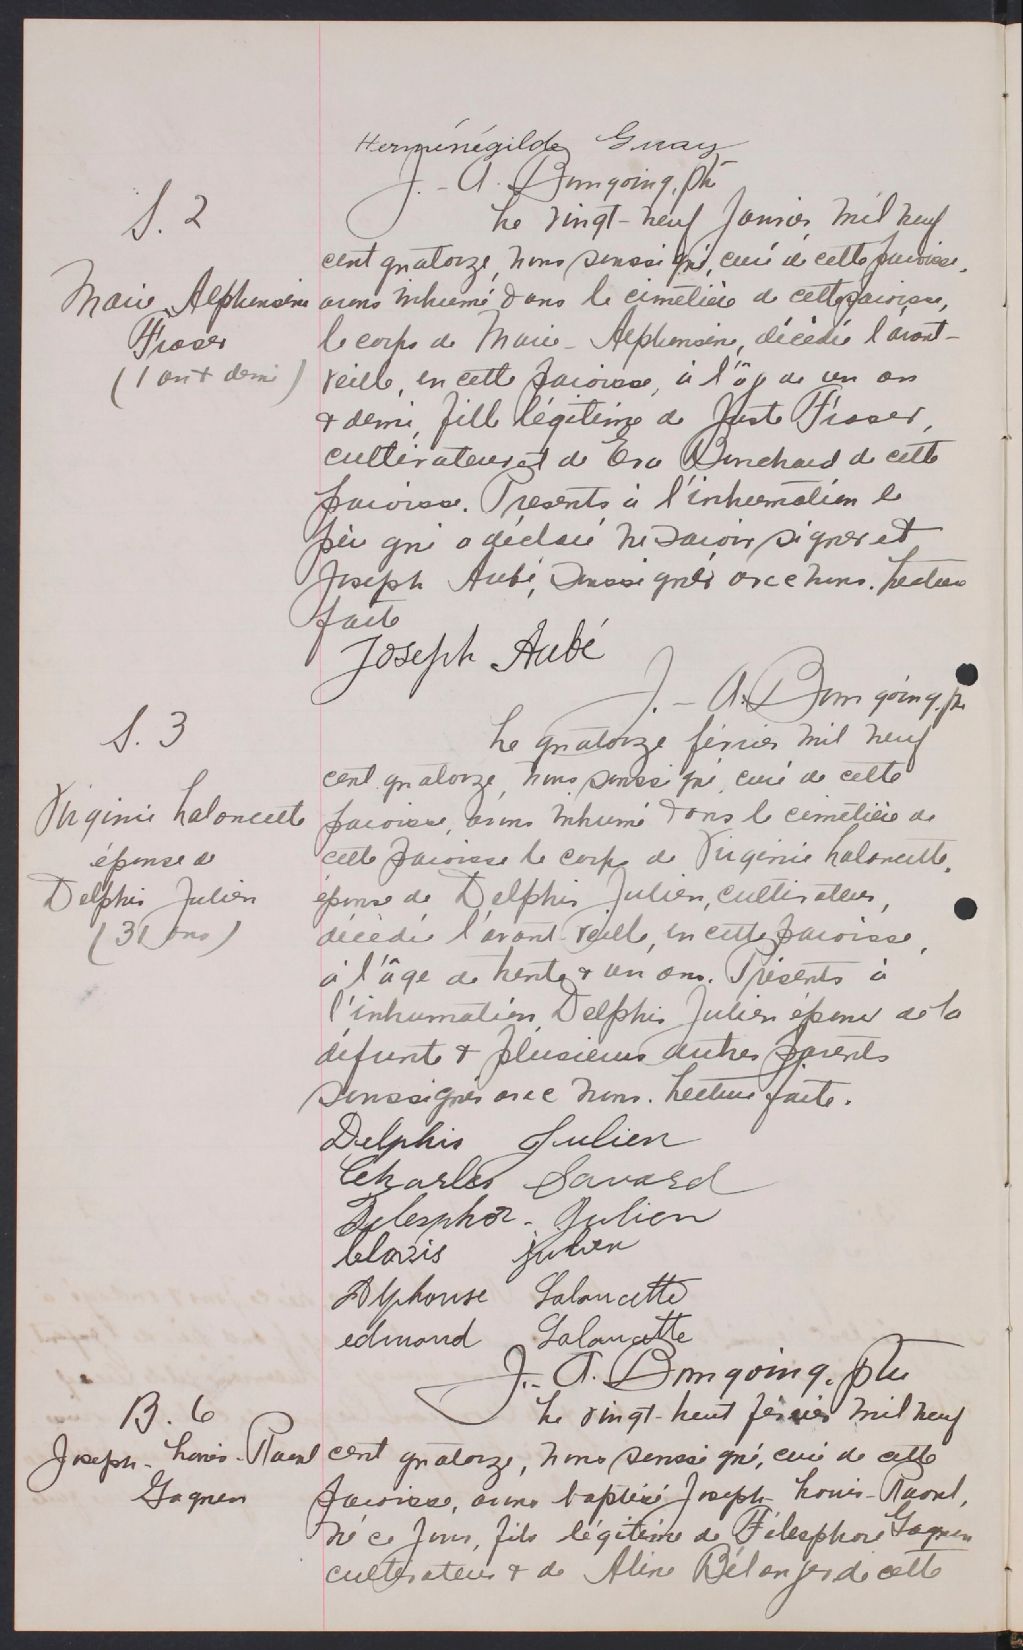 Herménégilde Guay
J.-A. Bourgoing, ptre
S. 2
Le vingt-neuf janvier mil neuf
cent quatorze, nous soussigné, curé de cette paroisse,
Marie Alphonsine
Fraser
(1 an & demi)
avons inhumé dans le cimetière de cette paroisse,
le corps de Marie-Alphonsine, décédée l'avant-
veille, en cette paroisse, à l'âge de un an
& demi, fille légitime de Juste Fraser,
cultivateur et de Eva Bouchard de cette
paroisse. Présents à l'inhumation le
père qui a déclaré ne savoir signer et
Joseph Aubé, soussigné avec nous. Lecture
faite
Joseph Aubé
J.-A. Bourgoing, ptre
S. 3
Le quatorze février mil neuf
cent quatorze, nous soussigné, curé de cette
Virginie Laloncette
épouse de
Delphis Julien
(31 ans)
paroisse, avons inhumé dans le cimetière de
cette paroisse le corps de Virginie Laloncette,
épouse de Delphis Julien, cultivateur,
décédée l'avant-veille, en cette paroisse,
à l'âge de trente & un ans. Présents à
l'inhumation, Delphis Julien époux de la
défunte & plusieurs autres parents
soussignés avec nous. Lecture faite.
Delphis Julien
Charles Savard
Télesphor. Julien
Clovis Julien
Alphonse Laloncette
edmond Laloncette
J.-A. Bourgoing, ptre
B. 6
Le vingt-huit février mil neuf
Joseph-Louis-Raoul
Gagnon
cent quatorze, nous soussigné, curé de cette
paroisse, avons baptisé Joseph-Louis-Raoul,
né ce jour, fils légitime de Télesphore Gagnon
cultivateur & de Aline Bélanger de cette